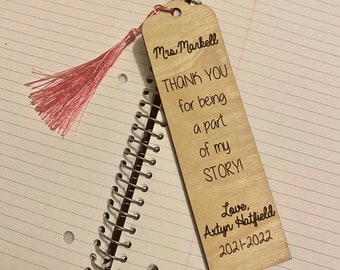 Mrs. Markell
THANK YOU
for being
a part
of my
STORY!
Love,
Axtyn Hatfield
2021-2022